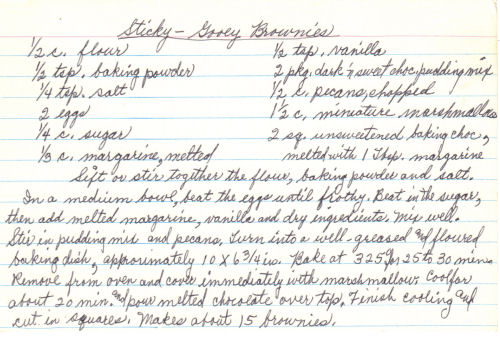 Sticky - Gooey Brownies
1/2 c. flour
1/2 tsp. baking powder
1/4 tsp. salt
2 eggs
1/4 c. sugar
1/3 c. margarine, melted
1/2 tsp. vanilla
2 pkg. dark 'n sweet choc. pudding mix
1/2 c. pecans, chopped
1 1/2 c. miniature marshmallows
2 sq. unsweetened baking choc.,
melted with 1 Tbsp. margarine
Sift or stir together the flour, baking powder and salt.
In a medium bowl, beat the eggs until frothy. Beat in the sugar,
then add melted margarine, vanilla and dry ingredients. Mix well.
Stir in pudding mix and pecans. Turn into a well-greased and floured
baking dish, approximately 10 x 6 3/4 in. Bake at 325° for 25 to 30 mins.
Remove from oven and cover immediately with marshmallows. Cool for
about 20 min. and pour melted chocolate over top. Finish cooling and
cut in squares. Makes about 15 brownies.